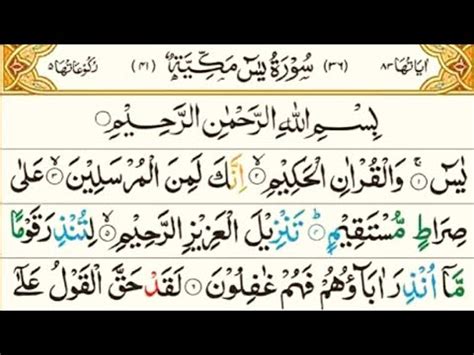 اٰيَاتُهَا ٨٣ (٣٦) سُوْرَةُ يٰسٓ مَكِّيَّةٌ (٤١) رُكُوْعَاتُهَا ٥
بِسْمِ اللّٰهِ الرَّحْمٰنِ الرَّحِيْمِ
يٰسٓ ١ وَالْقُرْاٰنِ الْحَكِيْمِ ٢ اِنَّكَ لَمِنَ الْمُرْسَلِيْنَ ٣ عَلٰى
صِرَاطٍ مُّسْتَقِيْمٍ ٤ تَنْزِيْلَ الْعَزِيْزِ الرَّحِيْمِ ٥ لِتُنْذِرَ قَوْمًا
مَّآ اُنْذِرَ اٰبَآؤُهُمْ فَهُمْ غٰفِلُوْنَ ٦ لَقَدْ حَقَّ الْقَوْلُ عَلٰٓى